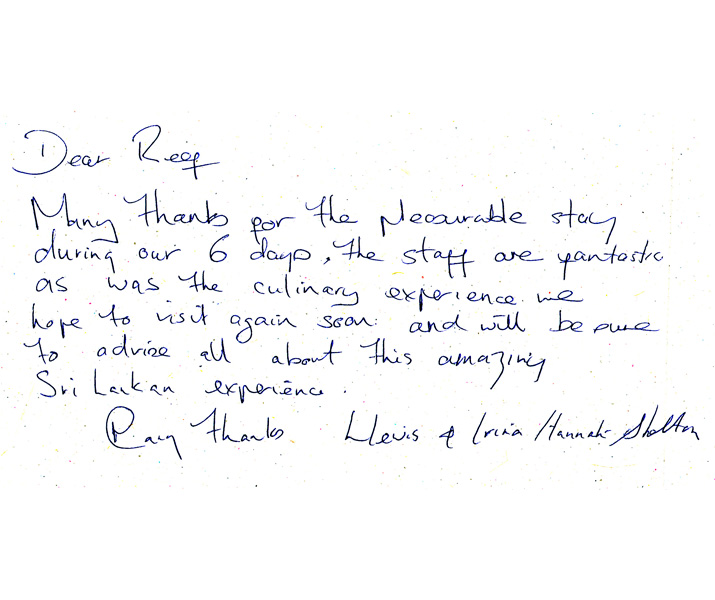 Dear Reef
Many thanks for the pleasurable stay
during our 6 days, the staff are fantastic
as was the culinary experience we
hope to visit again soon. and will be sure
to advise all about this amazing
Sri Lankan experience.
Many thanks & Irina Hannah-Shelton